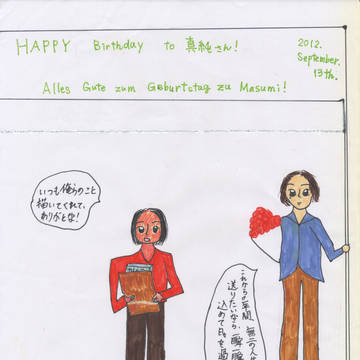 HAPPY Birthday to 真純さん!
2012.
September.
13th.
Alles Gute zum Geburtstag zu Masumi!
いつも俺らのこと
描いてくれて、
ありがとな!
これから一年間、無二の人
送りたいなら、一瞬一瞬
込めて日を過